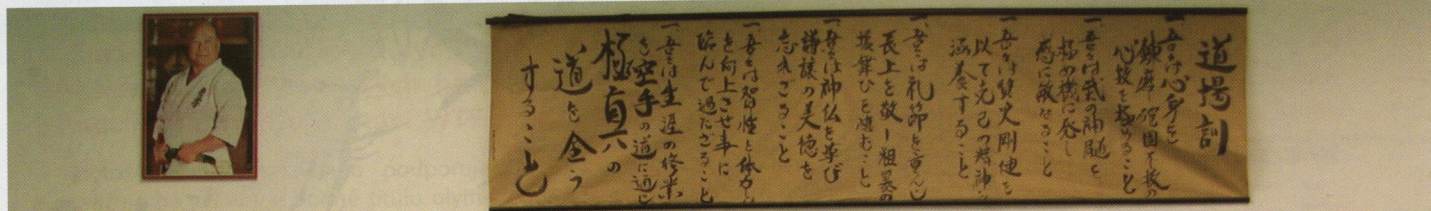 道場訓
一吾々は心身を
錬磨し確固不抜の
心技を極めること
一吾々は武の神髄を
極め機に発し
感に敏なること
一吾々は質実剛健を
以て克己の精神を
涵養すること
一吾々は礼節を重んじ
長上を敬し粗暴の
振舞ひを慎むこと
一吾々は神仏を尊び
謙譲の美徳を
忘れざること
一吾々は智性と体力と
を向上させ事に
臨んで過たざること
一吾々は生涯の修業
を空手の道に通じ
極真の
道を全う
すること